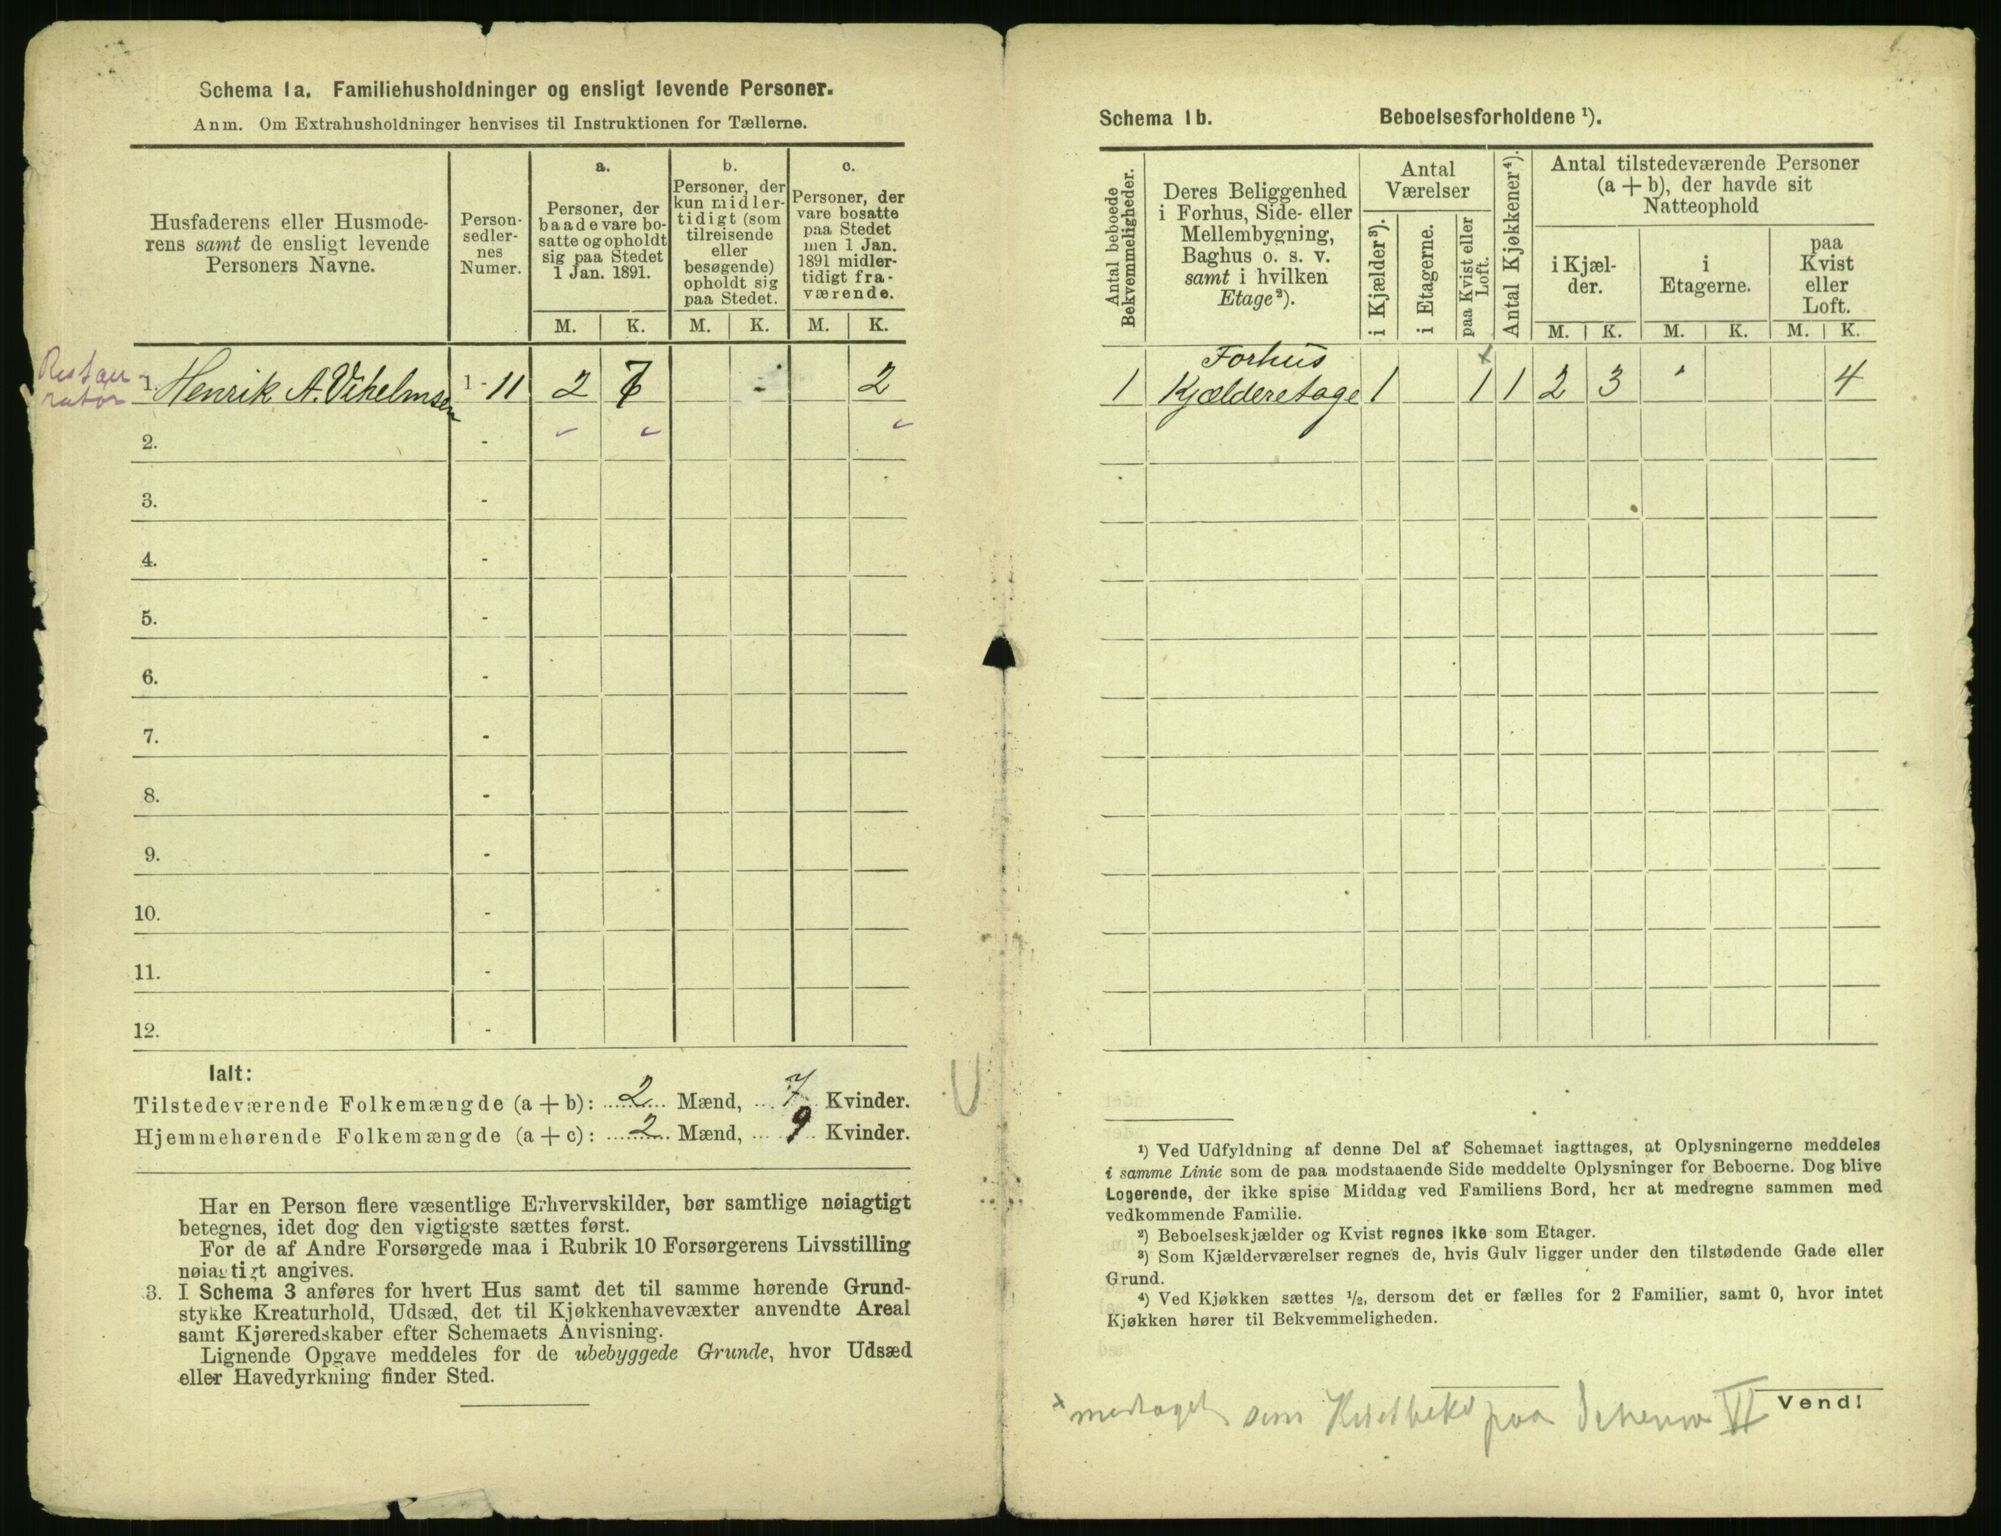 Schema 1a. Familiehusholdninger og ensligt levende Personer.
Anm. Om Extrahusholdninger henvises til Instruktionen for Tællerne.
Husfaderens eller Husmode-
rens samt de ensligt levende
Personers Navne.
Person-
sedler-
nes
Numer.
a.
Personer, der
baade vare bo-
satte og opholdt
sig paa Stedet
1 Jan. 1891.
b.
Personer, der
kun midler-
tidigt (som
tilreisende
eller
besøgende)
opholdt sig
paa Stedet.
c.
Personer, der
vare bosatte
paa Stedet
men 1 Jan.
1891 midler-
tidigt fra-
værende.
M. K. M. K. M. K.
Restau-
ratør
1. Henrik A. Vihelmsen 1 - 11 2 7 - 2
2. -
3. -
4. -
5. -
6. -
7. -
8. -
9. -
10. -
11. -
12. -
Ialt:
Tilstedeværende Folkemængde (a + b): 2 Mænd, 7 Kvinder.
Hjemmehørende Folkemængde (a + c): 2 Mænd, 9 Kvinder.
Har en Person flere væsentlige Erhvervskilder, bør samtlige nøiagtigt
betegnes, idet dog den vigtigste sættes først.
For de af Andre Forsørgede maa i Rubrik 10 Forsørgerens Livsstilling
nøiagtigt angives.
3. I Schema 3 anføres for hvert Hus samt det til samme hørende Grund-
stykke Kreaturhold, Udsæd, det til Kjøkkenhavevæxter anvendte Areal
samt Kjøreredskaber efter Schemaets Anvisning.
Lignende Opgave meddeles for de ubebyggede Grunde, hvor Udsæd
eller Havedyrkning finder Sted.
Schema 1b. Beboelsesforholdene ¹).
Antal beboede
Bekvemmeligheder.
Deres Beliggenhed
i Forhus, Side- eller
Mellembygning,
Baghus o. s. v.
samt i hvilken
Etage²).
Antal
Værelser
i Kjælder³).
i Etagerne.
paa Kvist eller
Loft.
Antal Kjøkkener⁴).
Antal tilstedeværende Personer
(a + b), der havde sit
Natteophold
i Kjæl-
der.
i
Etagerne.
paa
Kvist
eller
Loft.
M. K. M. K. M. K.
Forhus x
1 Kjælderetage 1 1 1 2 3 4
¹) Ved Udfyldning af denne Del af Schemaet iagttages, at Oplysningerne meddeles
i samme Linie som de paa modstaaende Side meddelte Oplysninger for Beboerne. Dog blive
Logerende, der ikke spise Middag ved Familiens Bord, her at medregne sammen med
vedkommende Familie.
²) Beboelseskjælder og Kvist regnes ikke som Etager.
³) Som Kjælderværelser regnes de, hvis Gulv ligger under den tilstødende Gade eller
Grund.
⁴) Ved Kjøkken sættes ½, dersom det er fælles for 2 Familier, samt 0, hvor intet
Kjøkken hører til Bekvemmeligheden.
Vend!
x medtaget som paa Schema VI